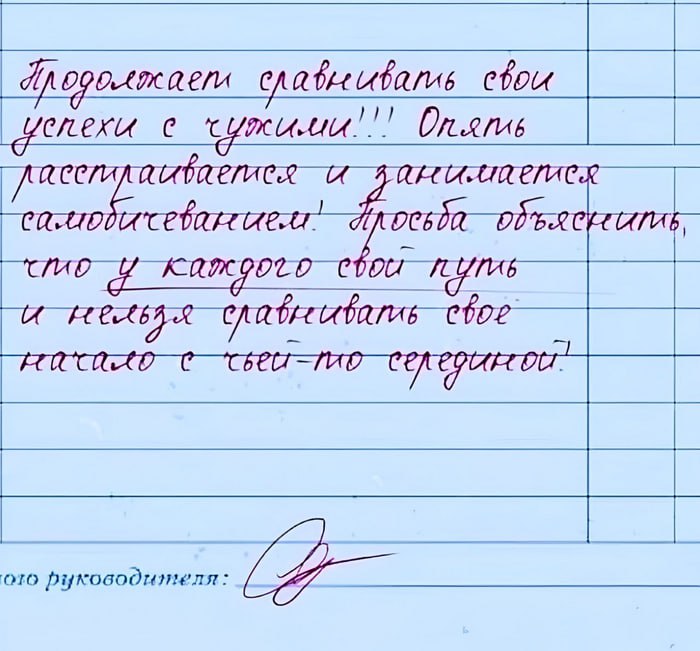 Продолжает сравнивать свои
успехи с чужими!!! Опять
расстраивается и занимается
самобичеванием! Просьба объяснить,
что у каждого свой путь
и нельзя сравнивать своё
начало с чьей-то серединой!
ого руководителя: